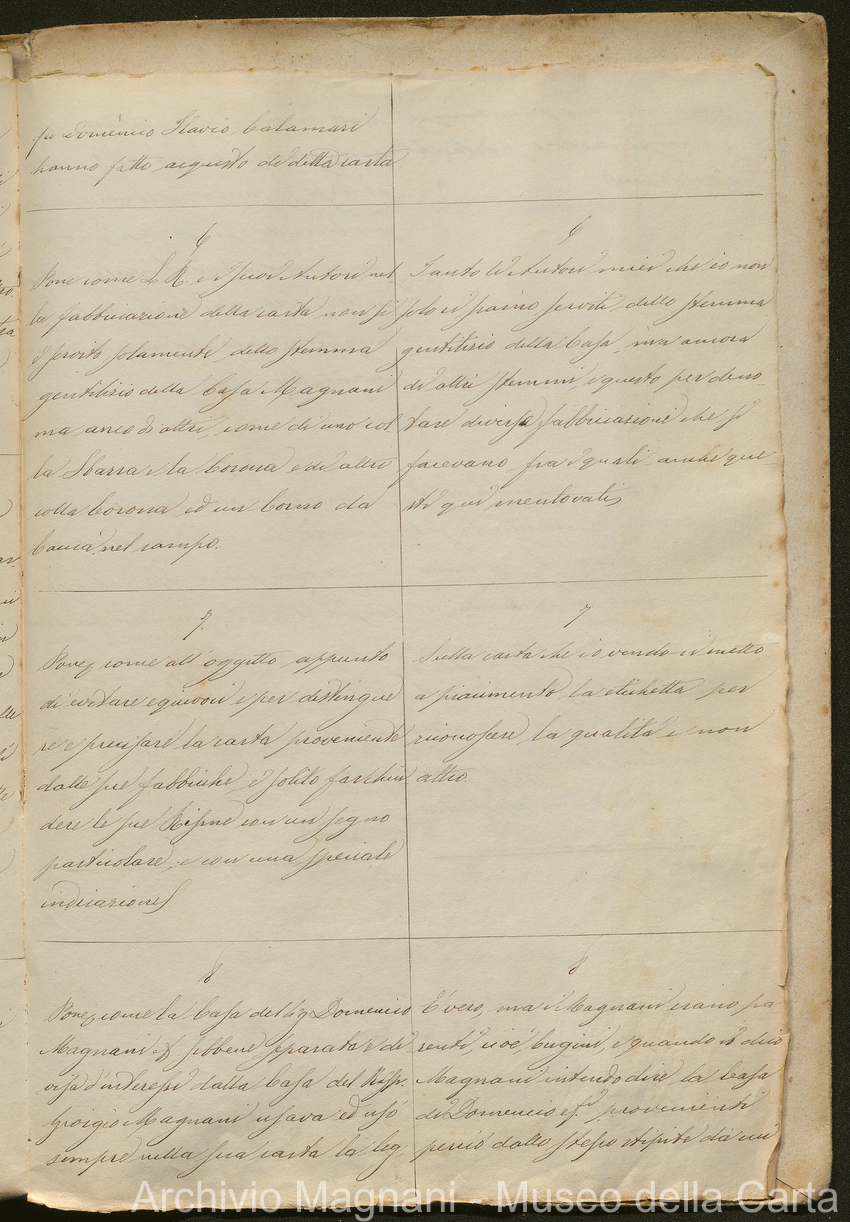 fu Domenico Flavio Calamari
hanno fatto acquisto di detta carta
6
Pone come L. R. e i suoi Autori nel-
la fabbricazione della carta non si
è servito solamente dello stemma
gentilizio della Casa Magnani
ma anco di altri, come di uno col-
la Sbarra e la Corona e di altro
colla Corona ed un Corno da
Caccia nel campo.
6
Tanto li Autori miei che io non
solo ci siamo serviti dello stemma
gentilizio della Casa, ma ancora
di altri stemmi e questo per deno-
tare diverse fabbricazioni che si
facevano fra i quali anche que-
sti qui mentovati
7.
Pone, come all'oggetto appunto
di evitare equivoci e per distingue
re e precisare la carta proveniente
dalle sue fabbriche, è solito far chiu-
dere le sue Risme con un segno
particolare, e con una speciale
indicazione
7
Sulla carta che io vendo ci metto
a piacimento la etichetta per
riconoscere la qualità e non
altro.
8
Pone, come la Casa del Sig Domenico
Magnani e f. sebbene separata e di-
visa d'interessi dalla Casa del Risp.
Giorgio Magnani usava ed usò
sempre nella sua carta la leg-
8
È vero, ma i Magnani erano pa-
renti, cioè cugini, e quando io dico
Magnani intendo dire la Casa
di Domenico e f.i provenienti
perciò dallo stesso stipite da cui
Archivio Magnani - Museo della Carta